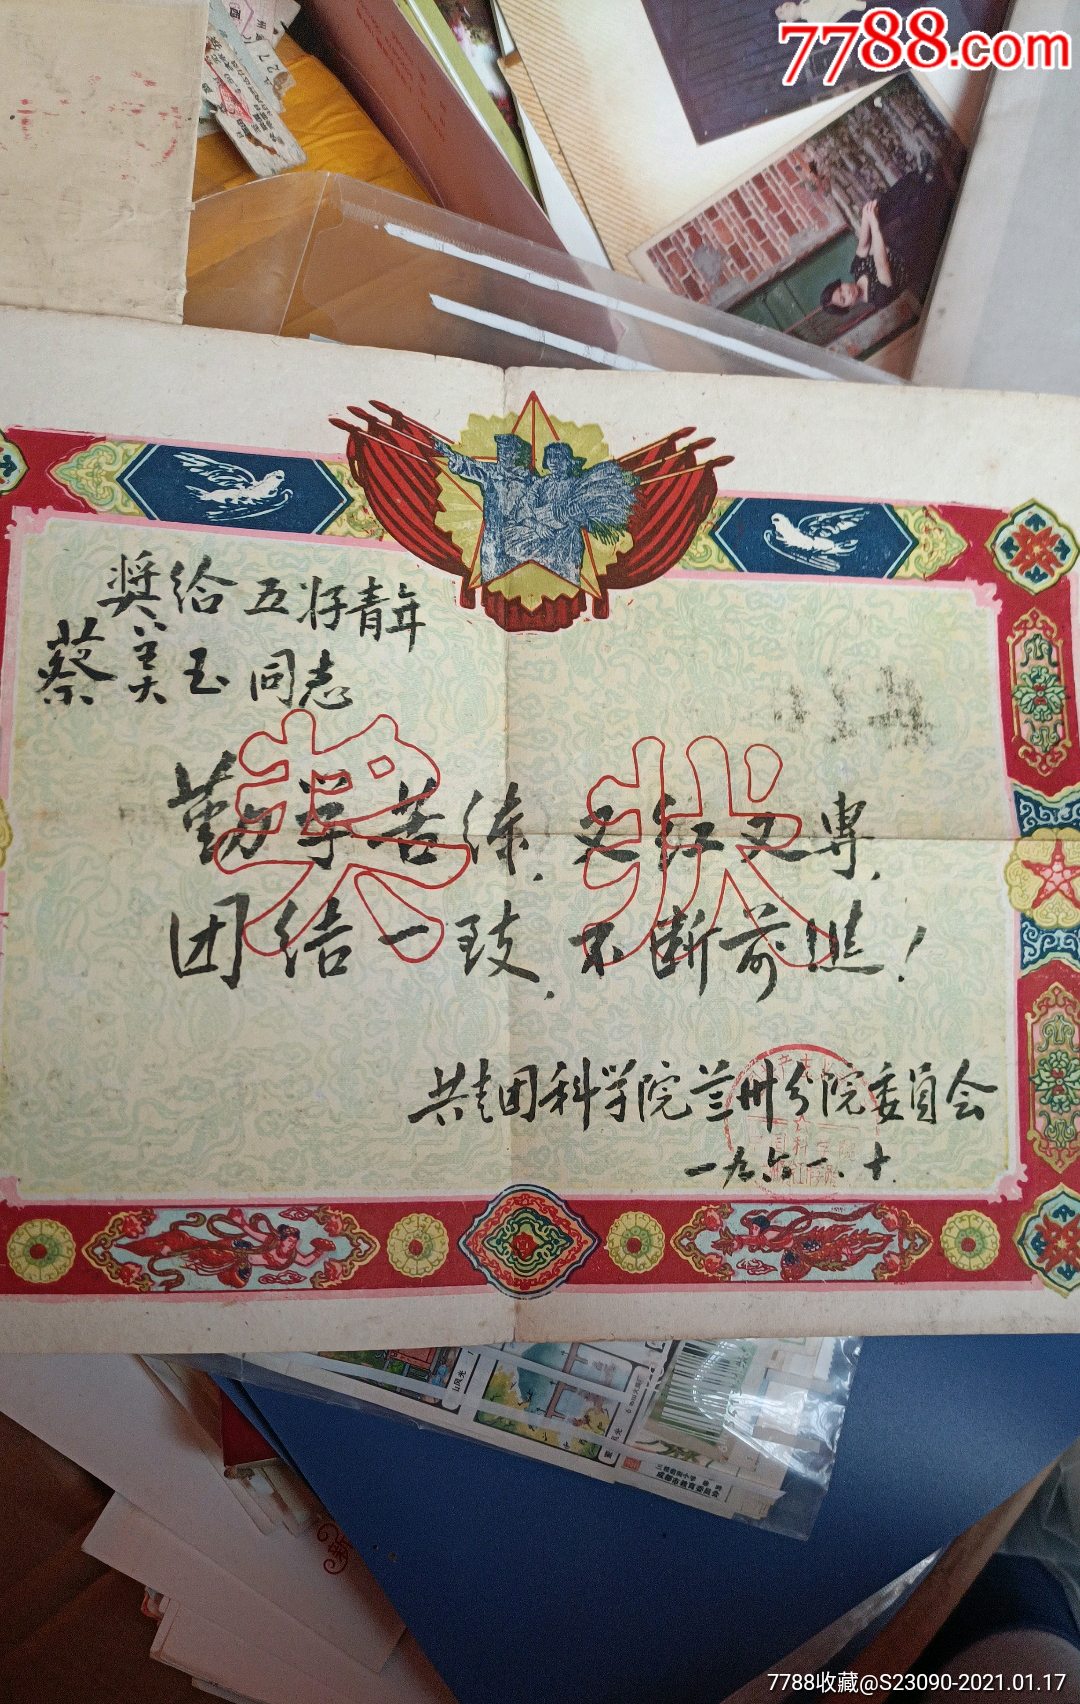 7788.com
奖给五好青年
蔡美玉同志
奖状
勤学苦练,又红又专,
团结一致,不断前进!
共青团科学院兰州分院委员会
一九六一、十.
7788收藏@S23090-2021.01.17